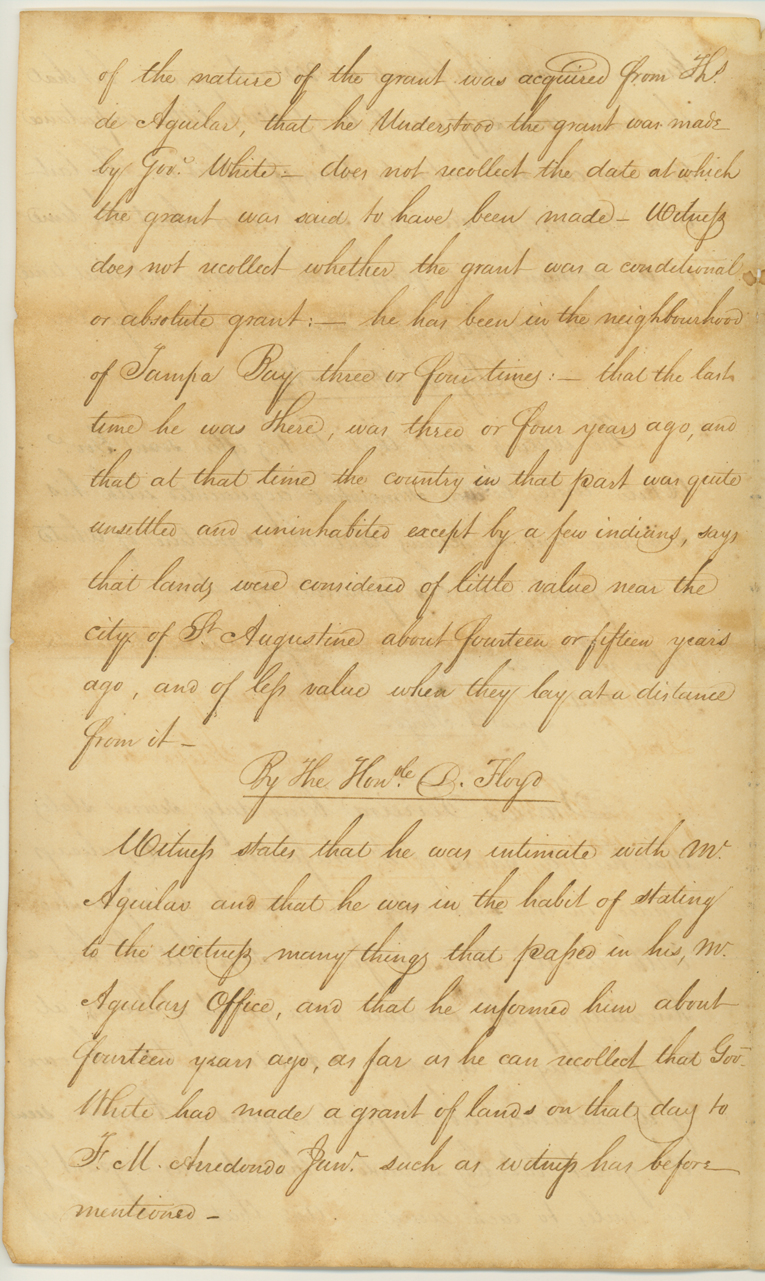 of the nature of the grant was acquired from Ths
de Aguilar, that he Understood the grant was made
by Govr. White - does not recollect the date at which
the grant was said to have been made - Witness
does not recollect whether the grant was a conditional
or absolute grant: - he has been in the neighbourhood
of Tampa Bay three or four times: - that the last
time he was there, was three or four years ago, and
that at that time the country in that part was quite
unsettled and uninhabited except by a few indians, says
that lands were considered of little value near the
city of St. Augustine about fourteen or fifteen years
ago, and of less value when they lay at a distance
from it -
By the Honble. D. Floyd
Witness states that he was intimate with Mr.
Aguilar and that he was in the habit of stating
to the witness many things that passed in his, Mr.
Aguilars Office, and that he informed him about
fourteen years ago, as far as he can recollect that Gov.
White had made a grant of lands on that day to
F. M. Arredondo Junr. such as witness has before
mentioned -